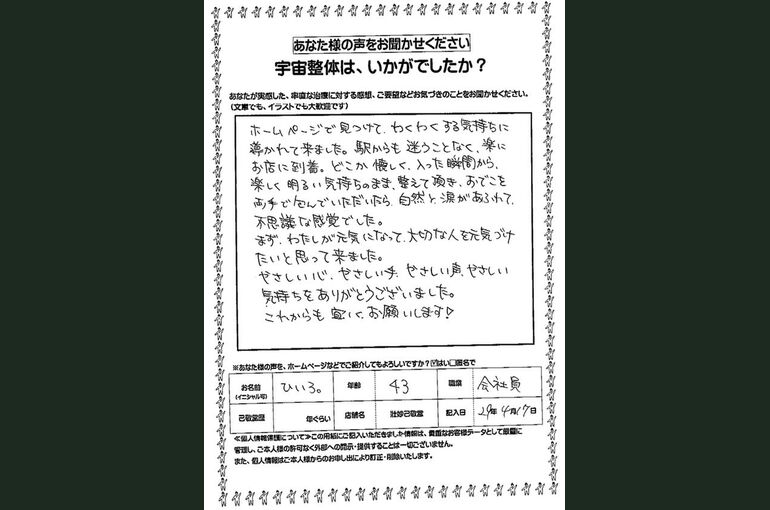 あなた様の声をお聞かせください
宇宙整体は、いかがでしたか？
あなたが実感した、率直な治療に対する感想、ご要望などお気づきのことをお聞かせください。
(文章でも、イラストでも大歓迎です)
ホームページで見つけて、わくわくする気持ちに
導かれて来ました。駅からも迷うことなく、楽に
お店に到着。どこか懐しく、入った瞬間から、
楽しく明るい気持ちのまま、整えて頂き、おでこを
両手で包んでいただいたら、自然と涙があふれて、
不思議な感覚でした。
まず、わたしが元気になって、大切な人を元気づけ
たいと思って来ました。
やさしい心、やさしい手、やさしい声、やさしい
気持ちをありがとうございました。
これからも宜しく、お願いします♡
※あなた様の声を、ホームページなどでご紹介してもよろしいですか？☑はい□匿名で
お名前 ひいろ。 年齢 43 職業 会社員
(イニシャル可)
己敬堂歴 年ぐらい 店舗名 壯妙己敬堂 記入日 29年4月17日
≪個人情報保護について≫この用紙にご記入いただきました情報は、貴重なお客様データとして厳重に
管理し、ご本人様の許可なく外部への開示・提供することは一切ございません。
また、個人情報はご本人様からのお申し出により訂正・削除いたします。